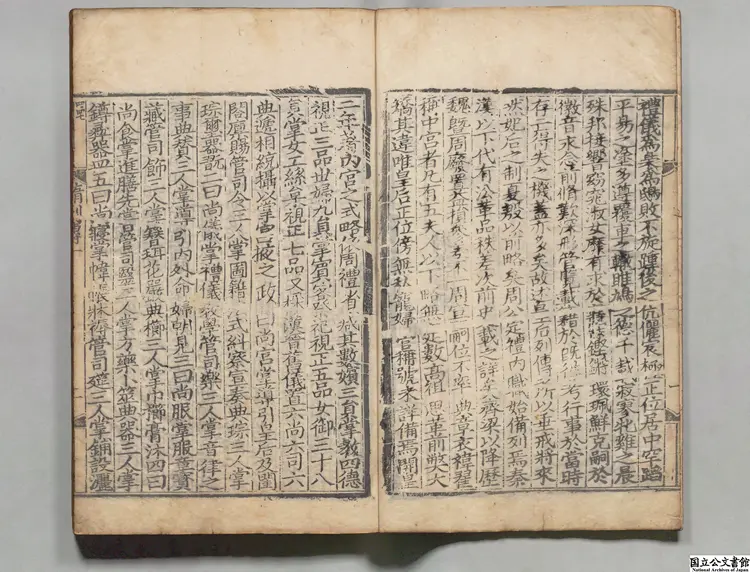 禮儀爲梟爲鴟敗不旋踵後之伉儷宸極正位居中罕蹈
平易之塗多遵覆車之轍雎鳩之德千載寂寥牝雞之晨
殊邦接響窈窕淑女靡有求於寤寐鏗鏘環珮鮮克嗣於
徽音永念前脩歎深彤管覽載籍於既往考行事於當時
存亡得失之機蓋亦多矣故述皇后列傳所以垂戒將來
然妃后之制夏殷以前略矣周公定禮內職始備列焉秦
漢以下代有沿革品秩差次前史載之詳矣齊梁以降歷
魏曁周廢置益損參差不一周宣嗣位不率典章衣褘翟
稱中宮者凡有五夫人以下略無定數高祖思革前弊大
矯其違唯皇后正位傍無私寵婦官稱號未詳備焉開皇
二年著內官之式略依周禮省減其數嬪三員掌教四德
視正三品世婦九員掌賓客祭祀視正五品女御三十八
員掌女工絲枲視正七品又採漢晉舊儀置六尚六司六
典遞相統攝以掌宮掖之政一曰尚宮掌導引皇后及閨
閤廩賜管司令三人掌圖籍法式糾察宣奏典琮三人掌
琮璽器翫二曰尚儀掌禮儀教學管司樂三人掌音律之
事典贊三人掌導引內外命婦朝見三曰尚服掌服章寶
藏管司飾三人掌簪珥花嚴典櫛三人掌巾櫛膏沐四曰
尚食掌進膳先嘗管司醫三人掌方藥卜筮典器三人掌
罇彝器皿五曰尚寢掌幃帳牀褥管司筵三人掌鋪設灑
国立公文書館
National Archives of Japan